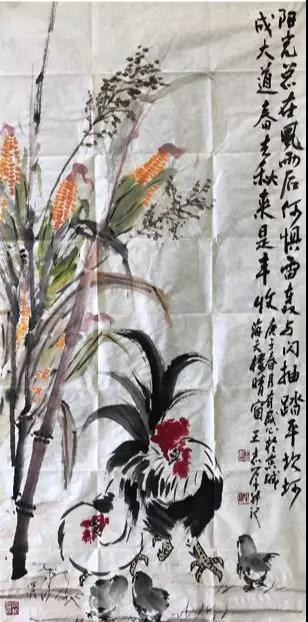 阳光总在风雨后何惧雷轰与闪抽踏平坎坷
成大道春去秋来是丰收庚子春月有感于京城
海天楼晴窗王志学并记